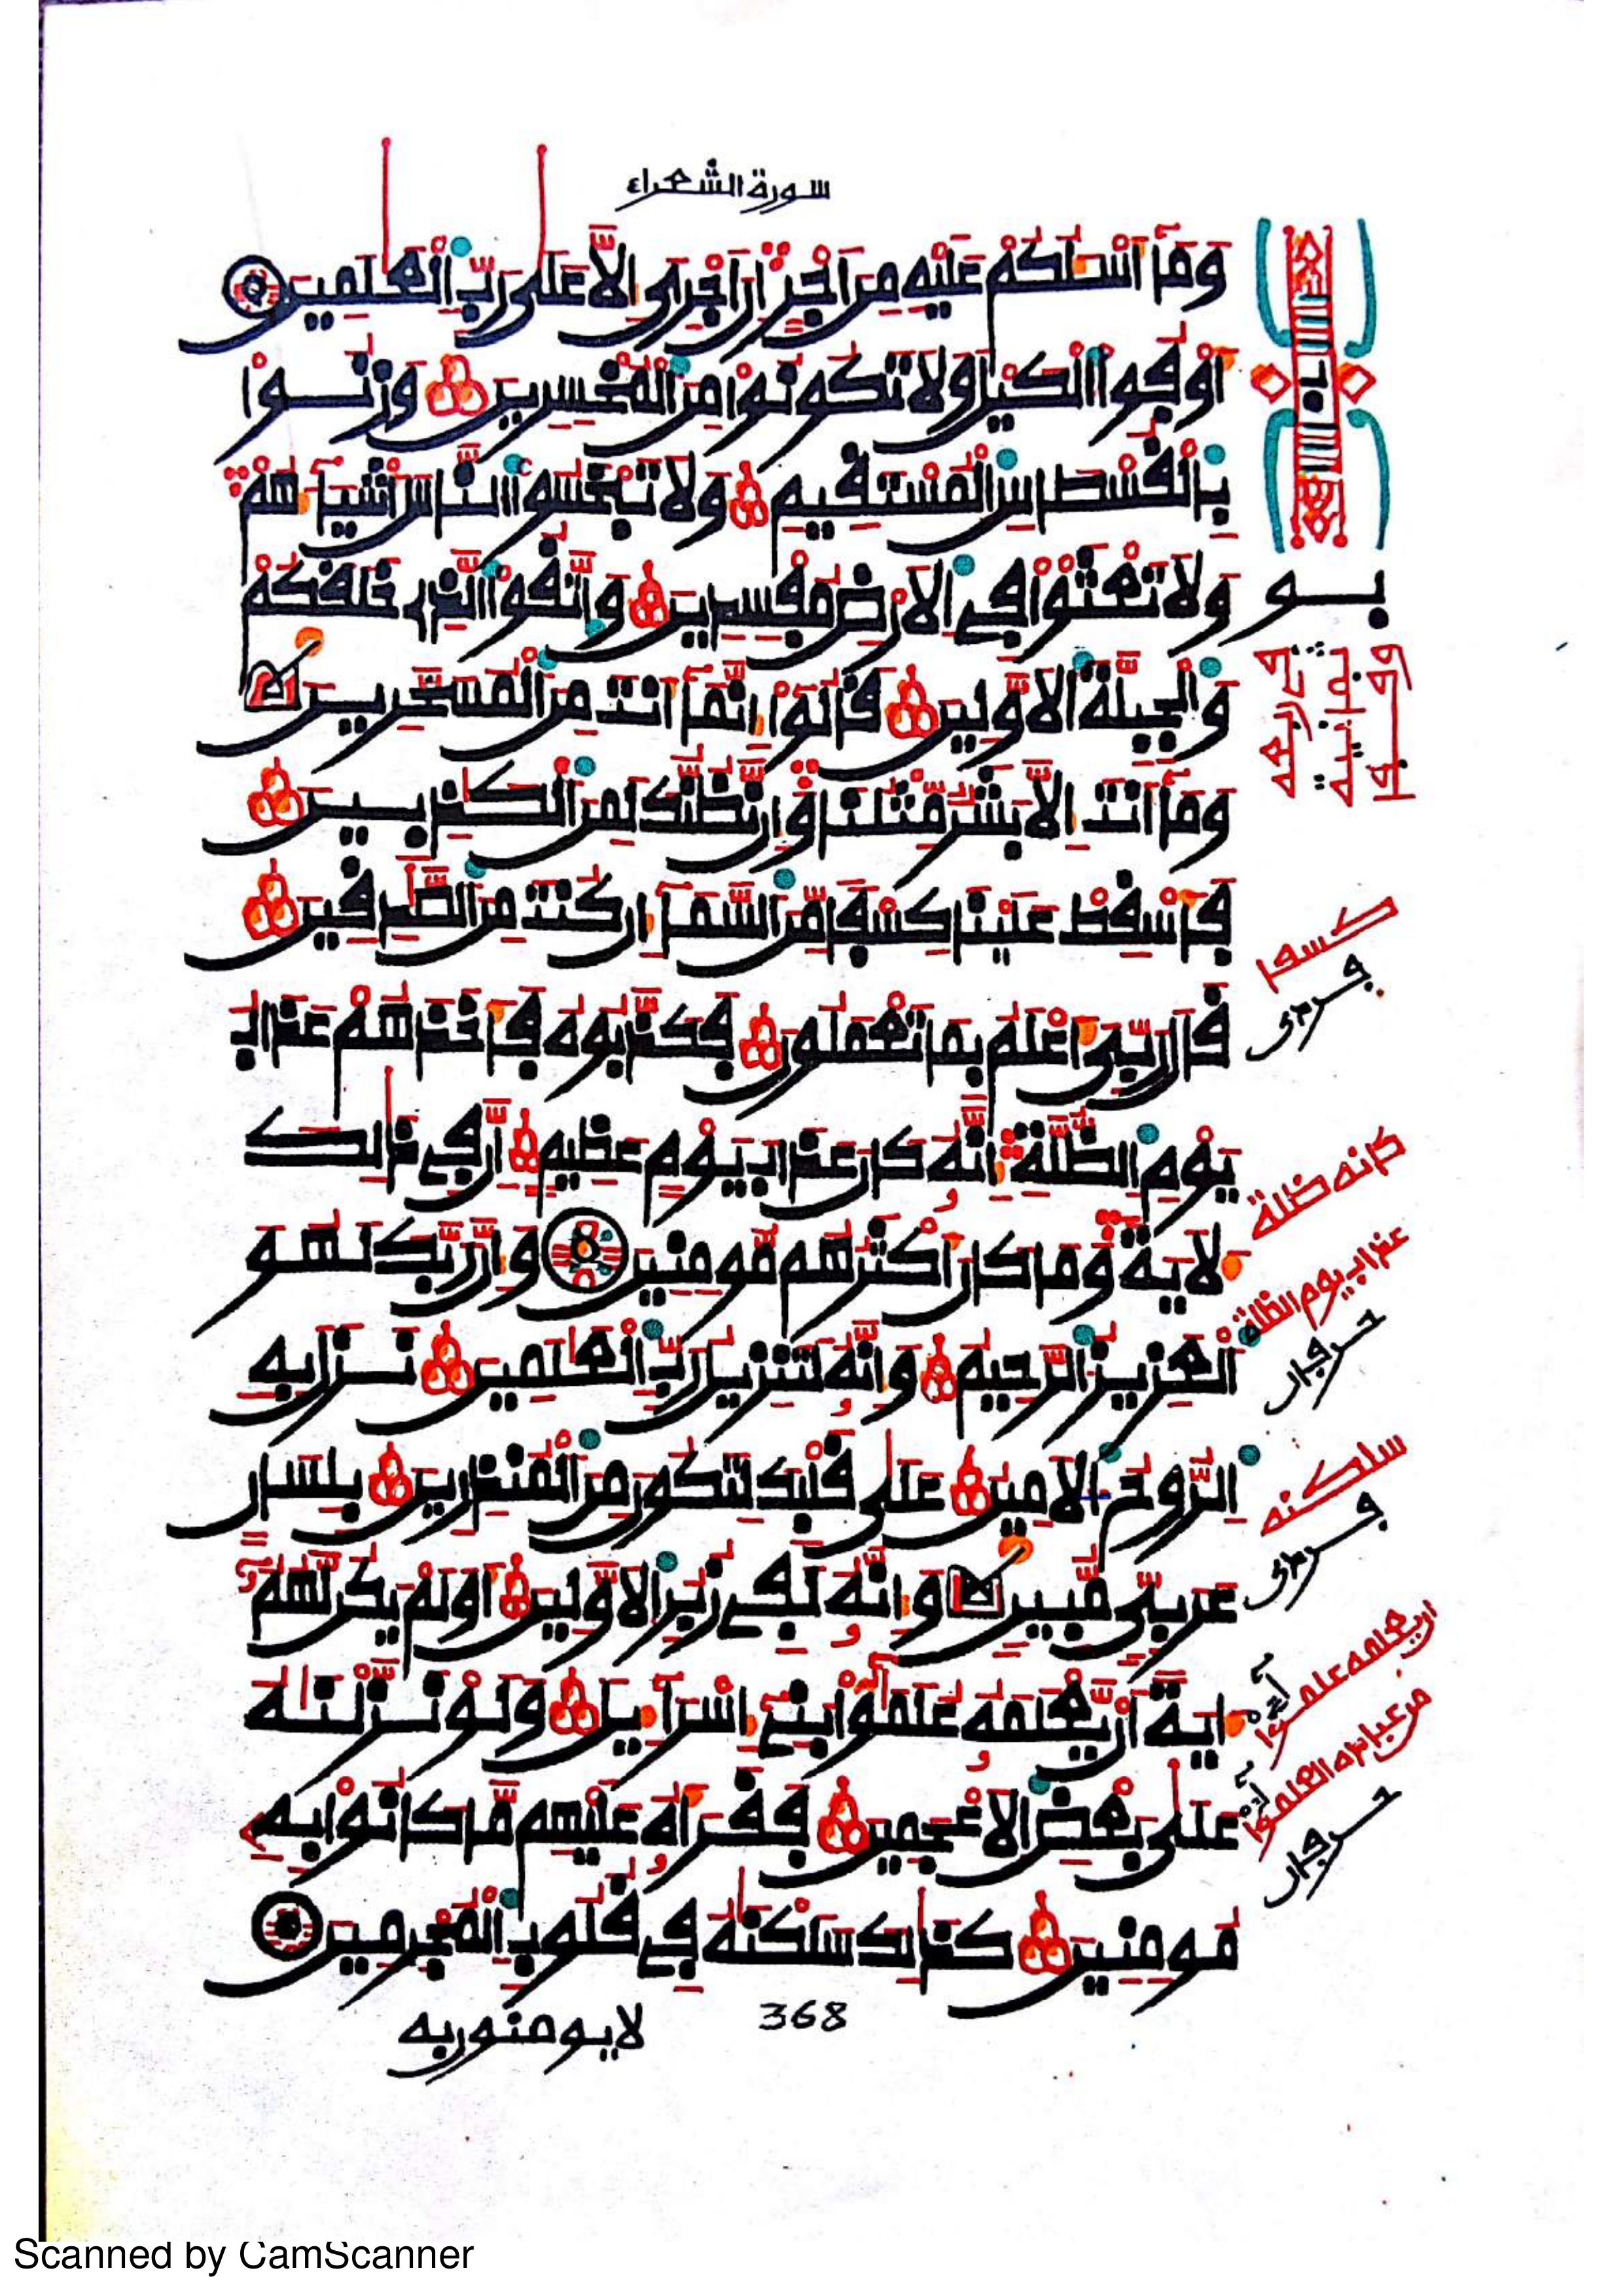 سورة الشعراء
وَمَآ أَسْـَٔلُكُمْ عَلَيْهِ مِنَ اَجْرٍ اِنَ اَجْرِيَ إِلَّا عَلَىٰ رَبِّ اِ۬لْعَٰلَمِينَ
أَوْفُواْ اُ۬لْكَيْلَ وَلَا تَكُونُواْ مِنَ اَ۬لْمُخْسِرِينَ وَزِنُواْ
بِالْقُسْطَاسِ اِ۬لْمُسْتَقِيمِ وَلَا تَبْخَسُواْ اُ۬لنَّاسَ أَشْيَآءَهُمْ
وَلَا تَعْثَوْاْ فِے اِ۬لَارْضِ مُفْسِدِينَ وَاتَّقُواْ اُ۬لذِے خَلَقَكُمْ
وَالْجِبِلَّةَ اَ۬لَاوَّلِينَ قَالُوٓاْ إِنَّمَآ أَنتَ مِنَ اَ۬لْمُسَحَّرِينَ
وَمَآ أَنتَ إِلَّا بَشَرٌ مِّثْلُنَا وَإِن نَّظُنُّكَ لَمِنَ اَ۬لْكَٰذِبِينَ
فَأَسْقِطْ عَلَيْنَا كِسْفاً مِّنَ اَ۬لسَّمَآءِ ان كُنتَ مِنَ اَ۬لصَّٰدِقِينَ
قَالَ رَبِّيَ أَعْلَمُ بِمَا تَعْمَلُونَ فَكَذَّبُوهُ فَأَخَذَهُمْ عَذَابُ
يَوْمِ اِ۬لظُّلَّةِ إِنَّهُۥ كَانَ عَذَابَ يَوْمٍ عَظِيمٍ إِنَّ فِے ذَٰلِكَ
لَأٓيَةً وَمَا كَانَ أَكْثَرُهُم مُّومِنِينَ وَإِنَّ رَبَّكَ لَهُوَ
اَ۬لْعَزِيزُ اُ۬لرَّحِيمُ وَإِنَّهُۥ لَتَنزِيلُ رَبِّ اِ۬لْعَٰلَمِينَ نَزَلَ بِهِ
اِ۬لرُّوحُ اُ۬لَامِينُ عَلَىٰ قَلْبِكَ لِتَكُونَ مِنَ اَ۬لْمُنذِرِينَ بِلِسَانٍ
عَرَبِيٍّ مُّبِينٍ وَإِنَّهُۥ لَفِے زُبُرِ اِ۬لَاوَّلِينَ أَوَلَمْ يَكُن لَّهُمُۥٓ
ءَايَةً أَن يَّعْلَمَهُۥ عُلَمَٰٓؤُاْ بَنِےٓ إِسْرَآءِيلَ وَلَوْ نَزَّلْنَٰهُ
عَلَىٰ بَعْضِ اِ۬لَاعْجَمِينَ فَقَرَأَهُۥ عَلَيْهِم مَّا كَانُواْ بِهِۦ
مُومِنِينَ كَذَٰلِكَ سَلَكْنَٰهُ فِے قُلُوبِ اِ۬لْمُجْرِمِينَ
368
لا يومنون به
كسفا
كانه ظلة
عذاب يوم الظلة
سلكنه
Scanned by CamScanner